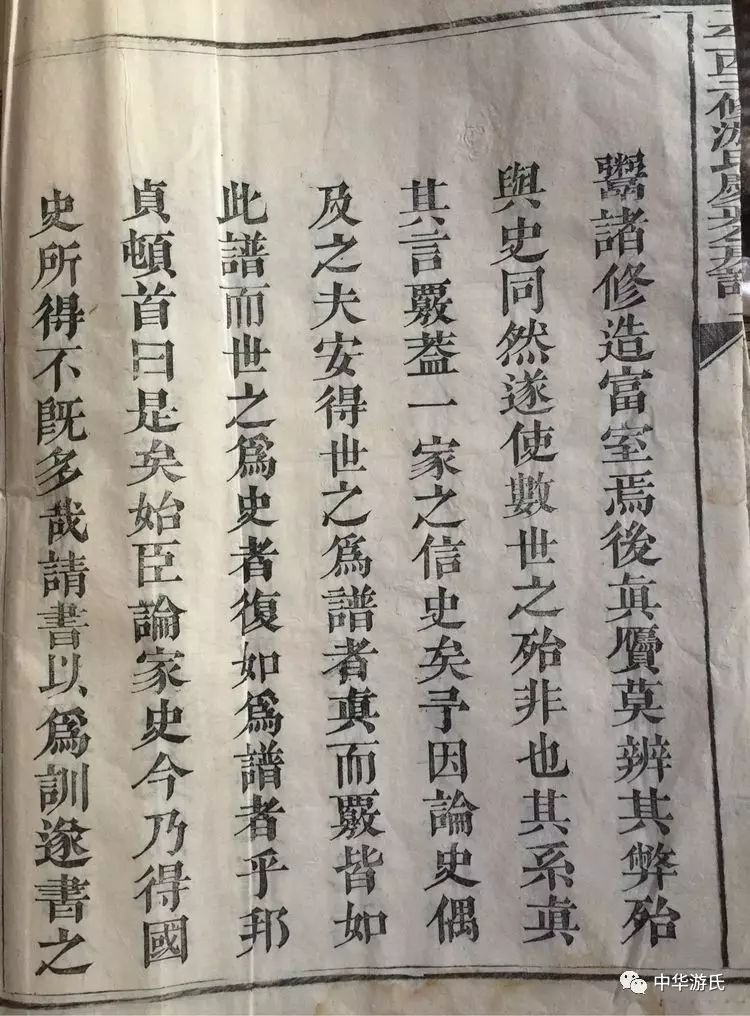 修游氏
鬻諸修造富室焉後眞贋莫辨其弊殆
與史同然遂使數世之殆非也其系眞
其言覈葢一家之信史矣予因論史偶
及之夫安得世之爲譜者眞而覈皆如
此譜而世之爲史者復如爲譜者乎邦
貞頓首曰是矣始臣論家史今乃得國
史所得不旣多哉請書以爲訓遂書之
中华游氏